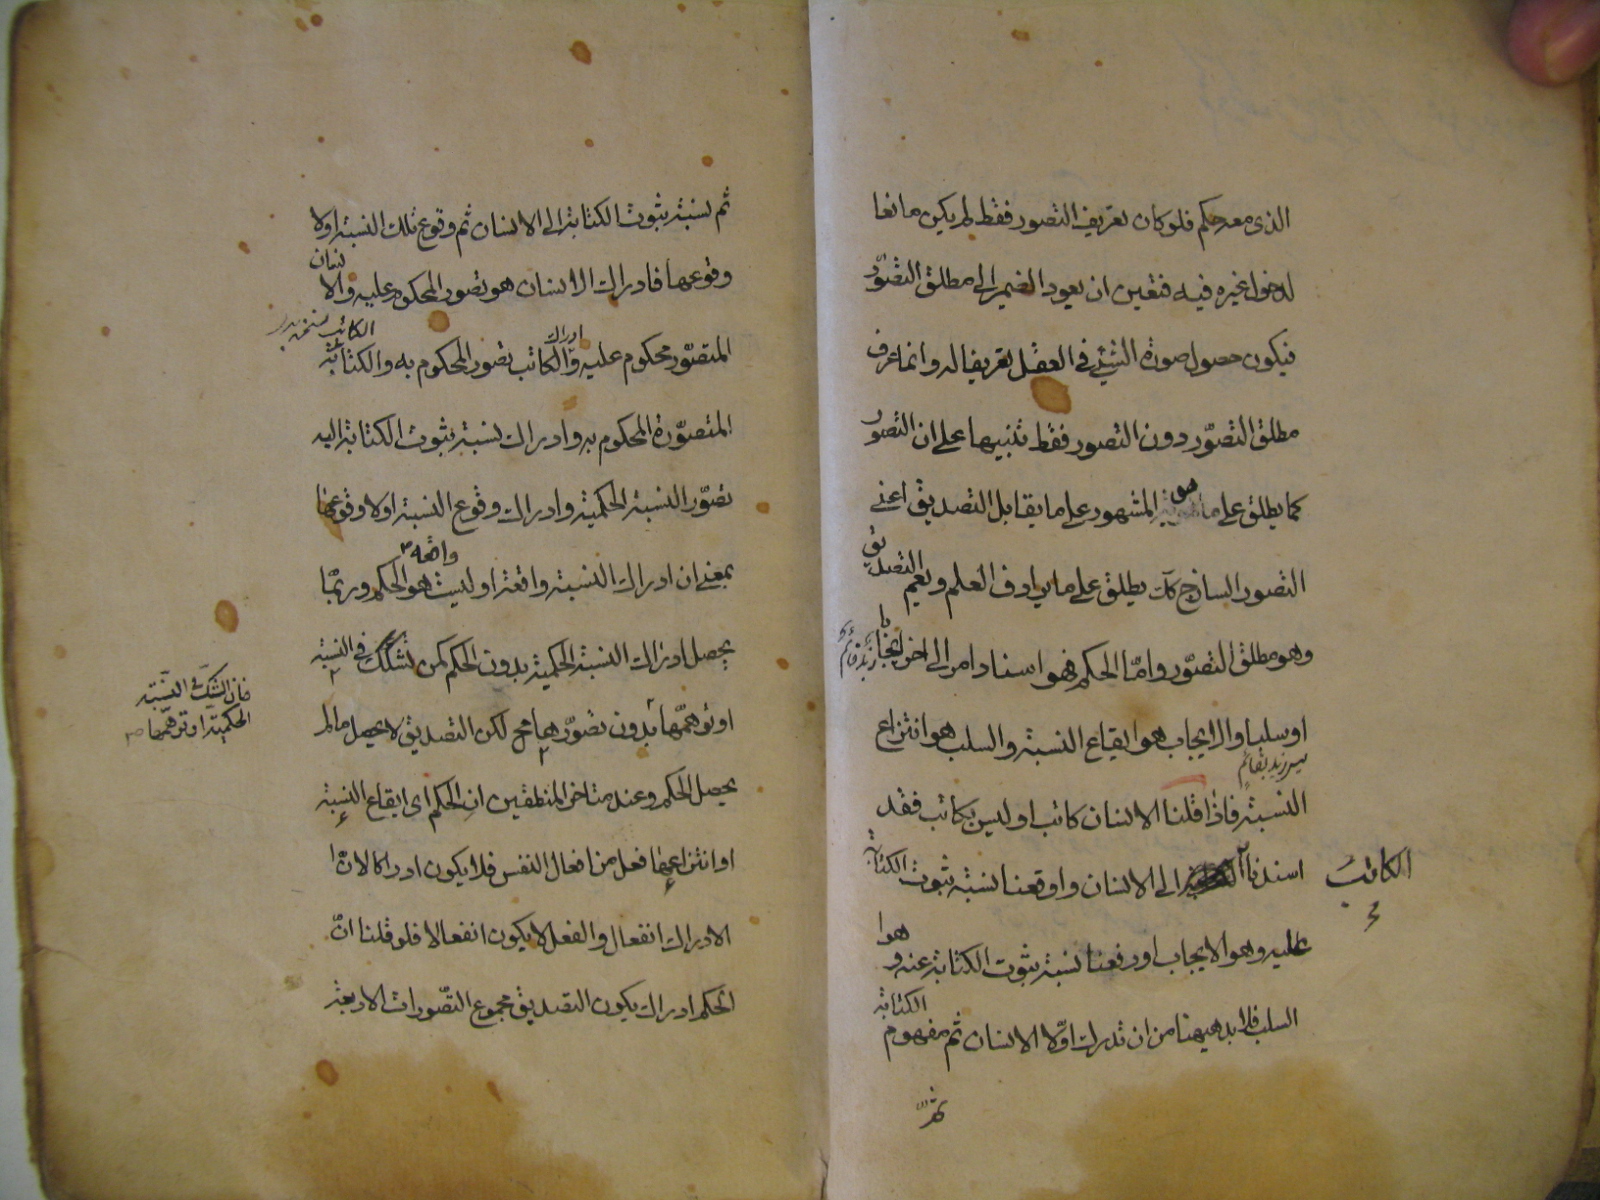 الذى معه حكم فلو كان تعريف التصور فقط لم يكن مانعا
لدخول غيره فيه فتعين ان يعود الضمير الى مطلق التصوّر
فيكون حصول صورة الشئ فى العقل تعريفا له وانما عرف
مطلق التصوّر دون التصور فقط تنبيها على ان التصور
كما يطلق على ما هو المشهور على ما يقابل التصديق اعنى
التصور الساذج كك يطلق على ما يرادف العلم ويعم التصديق
وهو مطلق التصوّر وامّا الحكم فهو اسناد امر الى اخر ايجابا
زيد قائم
او سلبا والايجاب هو ايقاع النسبة والسلب هو انتزاع
ليس زيد بقائم
النسبة فاذا قلنا الانسان كاتب او ليس بكاتب فقد
اسندنا الى الانسان واوقعنا نسبة ثبوت الكتابة
الكاتب
عليه وهو الايجاب او رفعنا نسبة ثبوت الكتابة عنه وهوا
السلب فلا بد هيهنا من ان تدرك اوّلا الانسان ثم مفهوم الكتابة
ثم
ثم نسبة ثبوت الكتابة الى الانسان ثم وقوع تلك النسبة اولا
وقوعها فادراك الانسان هو تصور المحكوم عليه والانسان
المتصوّر محكوم عليه وادراك الكاتب تصور المحكوم به والكتابة
الكاتب
المتصوّرة المحكوم به وادراك نسبة ثبوت الكتابة اليه
تصوّر النسبة الحكمية وادراك وقوع النسبة اولا وقوعها
بمعنى ان ادراك النسبة واقعة او ليست هو الحكم وربّما
واقعه
يحصل ادراك النسبة الحكمية بدون الحكم كمن تشكك فى النسبة
او توهمّها بدون تصوّرها مح لكن التصديق لا يحصل مالم
فان الشك فى النسبة
الحكمية او توهمّها
يحصل الحكم وعند متاخرى المنطقين ان الحكم اى ايقاع النسبة
او انتزاعها فعل من افعال النفس فلا يكون ادراكا لانّ
الادراك انفعال والفعل لا يكون انفعالا فلو قلنا انّ
الحكم ادراك يكون التصديق مجموع التصّورات الاربعة